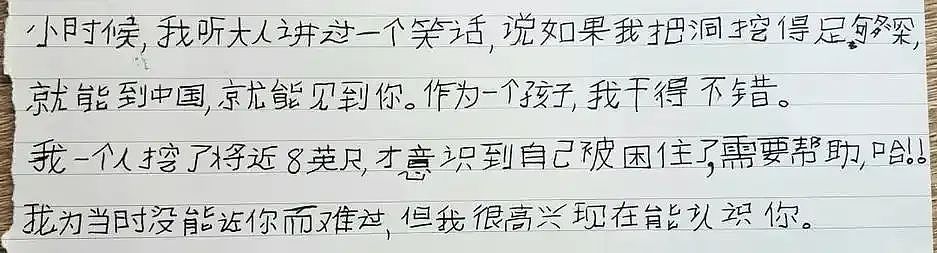 小时候,我听大人讲过一个笑话,说如果我把洞挖得足够深,
就能到中国,就能见到你。作为一个孩子,我干得不错。
我一个人挖了将近8英尺,才意识到自己被困住了,需要帮助,哈!!
我为当时没能让你而难过,但我很高兴现在能认识你。